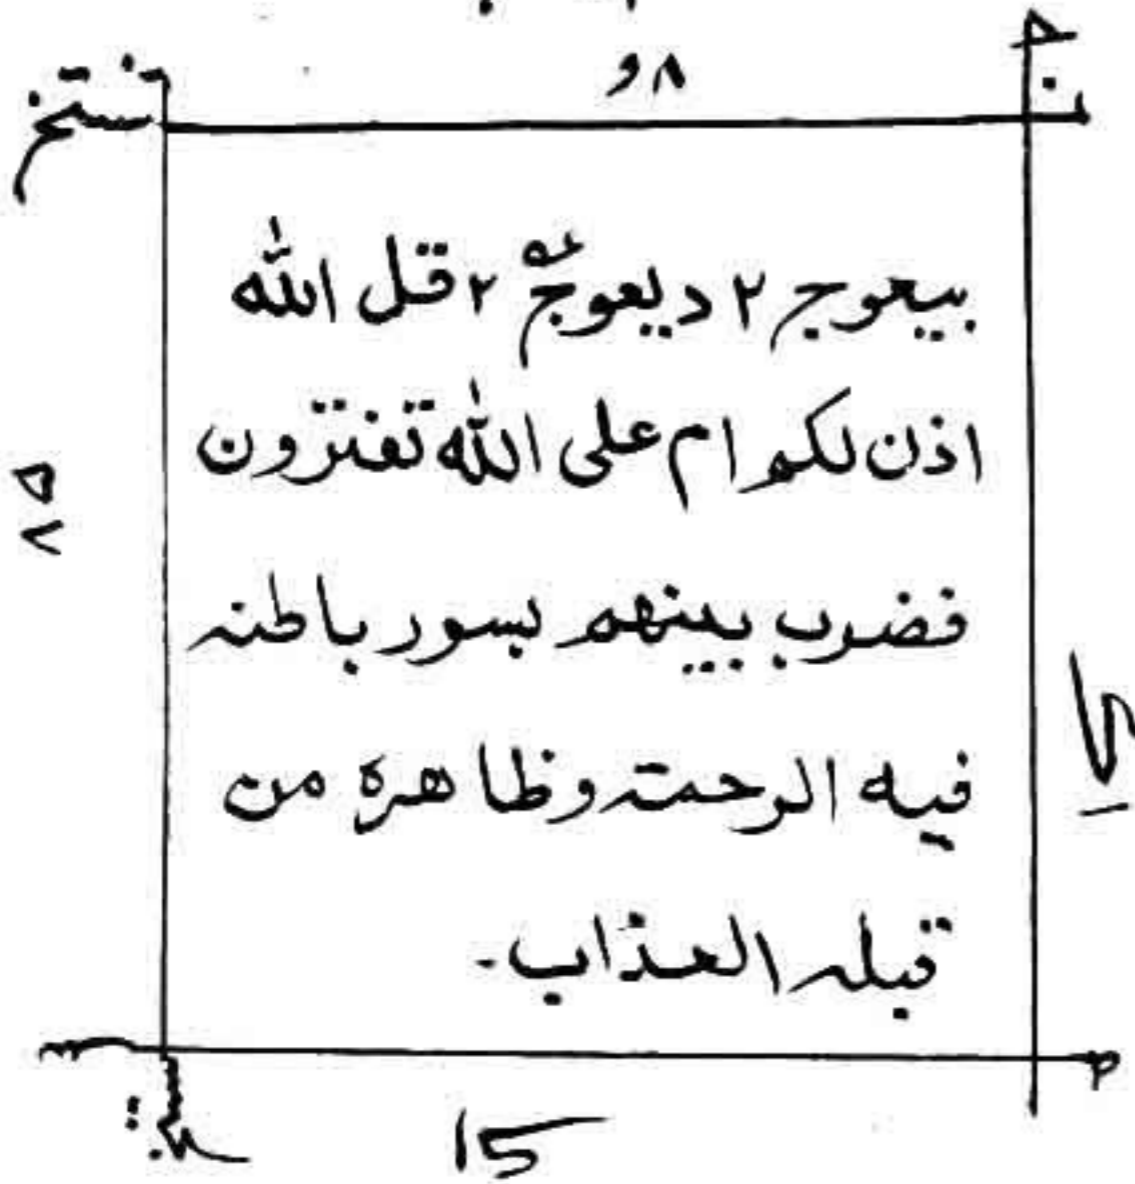 ٨ و
بيعوج ٢ ديعوج ٢ قل الله
اذن لكم ام على الله تفترون
فضرب بينهم بسور باطنه
فيه الرحمة وظاهره من
قبله العذاب -